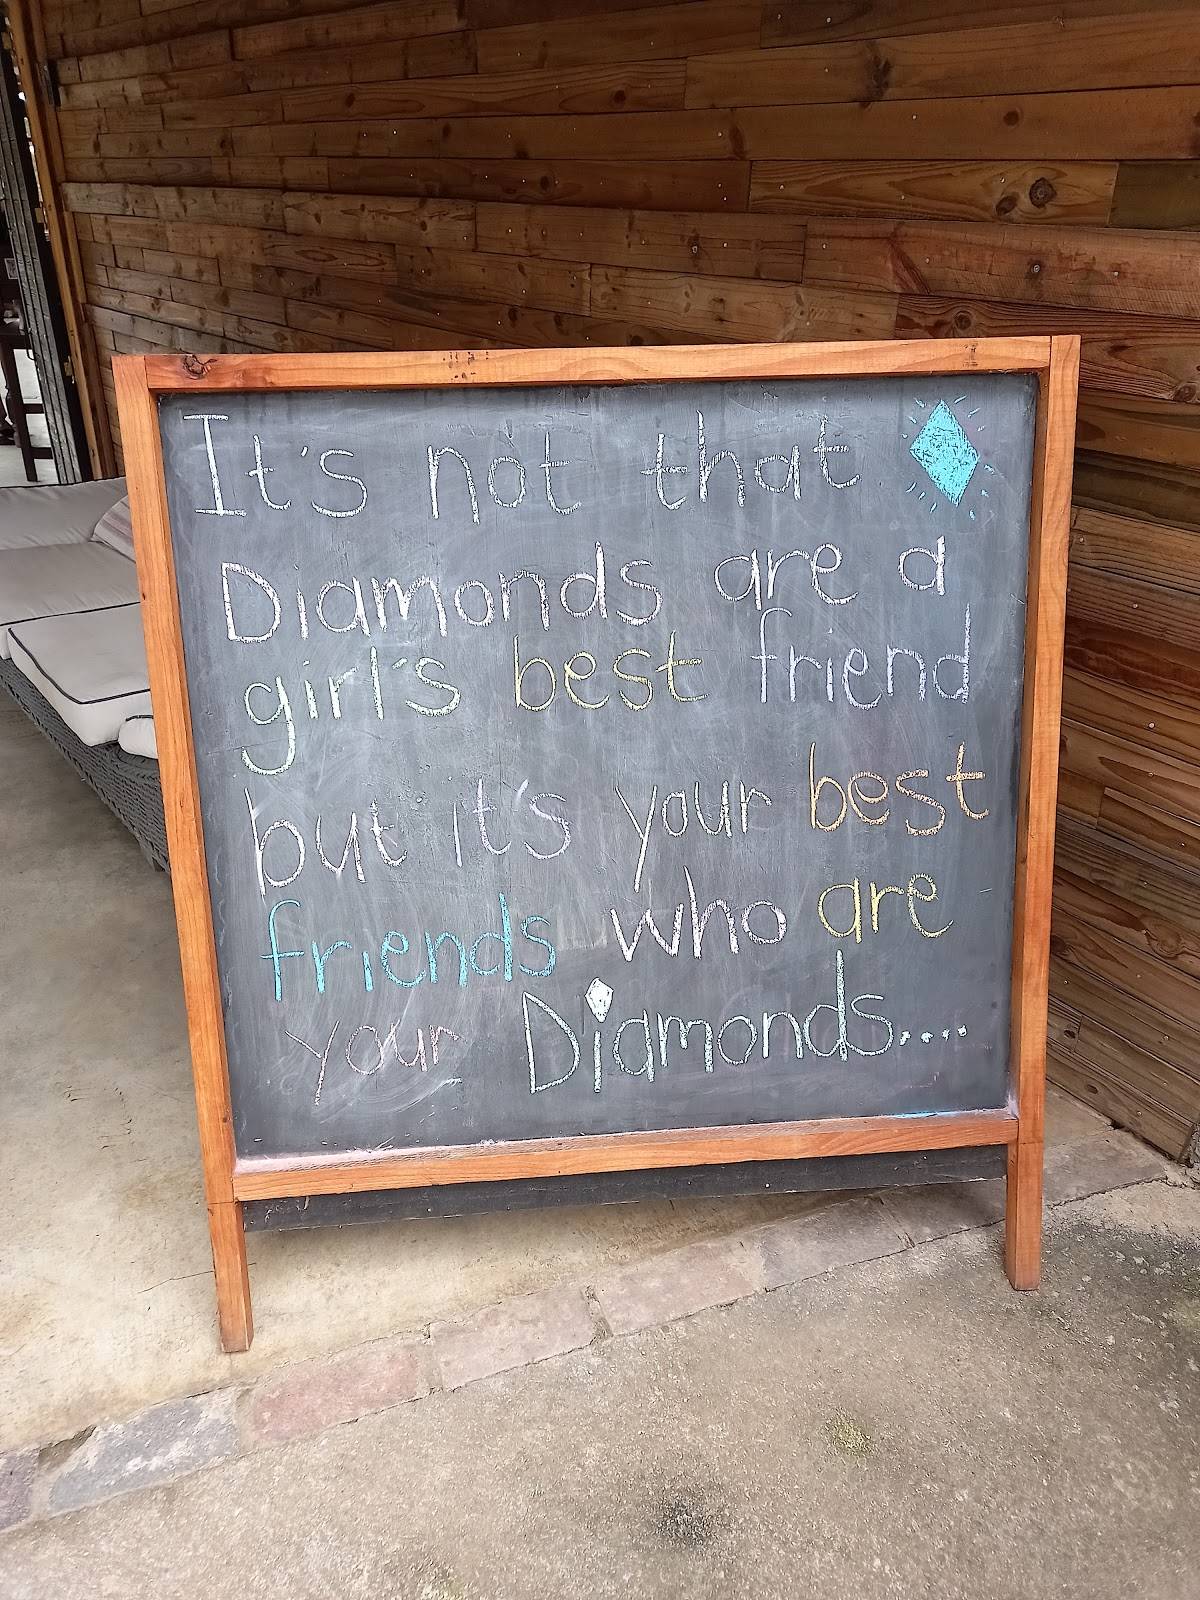 It's not that
Diamonds are a
girl's best friend
but it's your best
friends who are
your Diamonds....